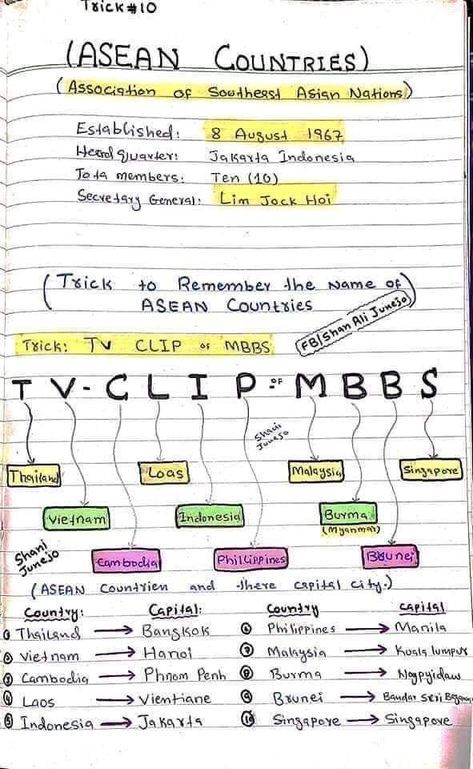 Trick #10
(ASEAN COUNTRIES)
(Association of Southeast Asian Nations)
Established: 8 August 1967
Headquarter: Jakarta Indonesia
Tota members: Ten (10)
Secretary General: Lim Jock Hoi
(Trick to Remember the Name of
ASEAN Countries
FB/Shan Ali Junejo
Trick: TV CLIP of MBBS
TV-CLIP OF MBBS
Shani Junejo
Thailand Loas Malaysia Singapore
Vietnam Indonesia Burma
(Myanmar)
Shani Junejo
Cambodia Phillippines Brunei
(ASEAN Countrien and there capital city.)
Country: Capital: Country Capital
1 Thailand → Bangkok 6 Philippines → Manila
2 Vietnam → Hanoi 7 Malaysia → Kuala lumpur
3 Cambodia → Phnom Penh 8 Burma → Naypyidaw
4 Laos → Vientiane 9 Brunei → Bandar Seri Begawan
5 Indonesia → Jakarta 10 Singapore → Singapore